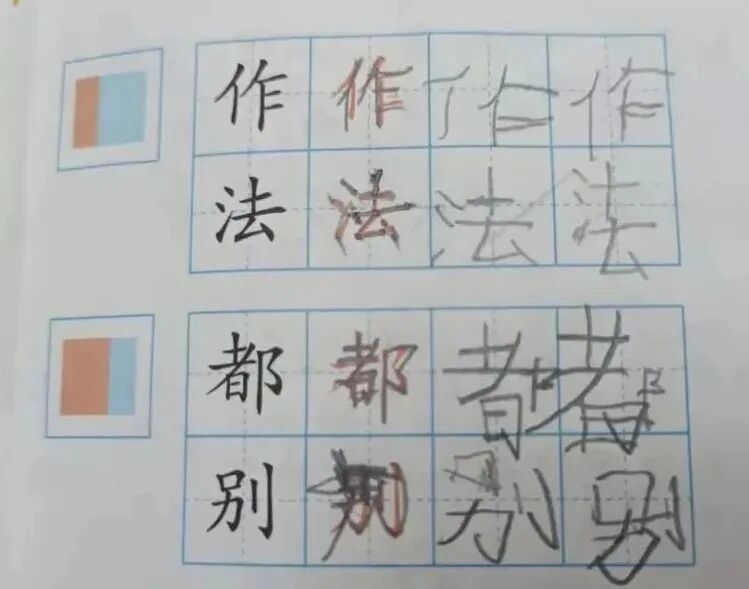 作 作 作 作
法 法 法 法
都 都 都 都
别 别 别 别